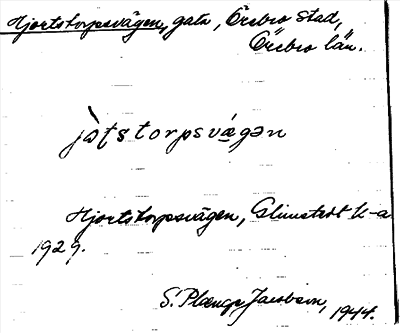 Hjortstorpsvägen, gata, Örebro stad,
Örebro län.
jo̧tstorpsvägən
Hjortstorpsvägen, Glimstedt k-a
1929.
S. Plænge Jacobson, 1944.